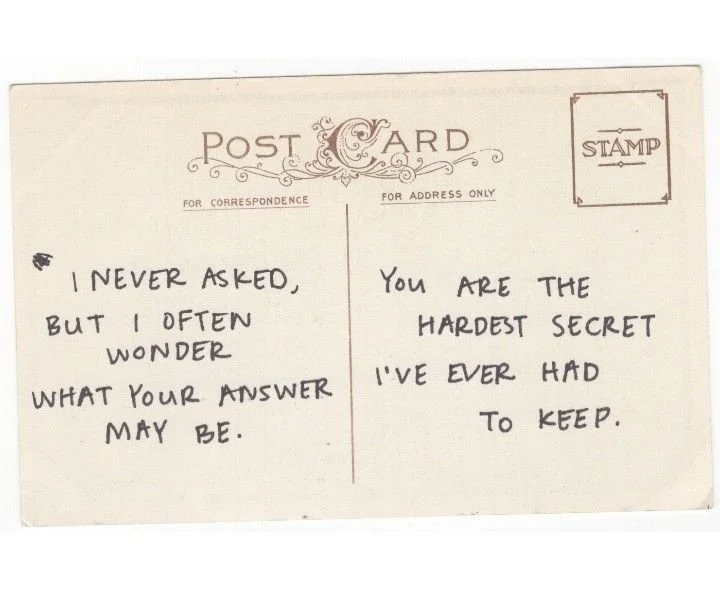 POST CARD
STAMP
FOR CORRESPONDENCE
FOR ADDRESS ONLY
I NEVER ASKED,
BUT I OFTEN
WONDER
WHAT YOUR ANSWER
MAY BE.
YOU ARE THE
HARDEST SECRET
I'VE EVER HAD
TO KEEP.